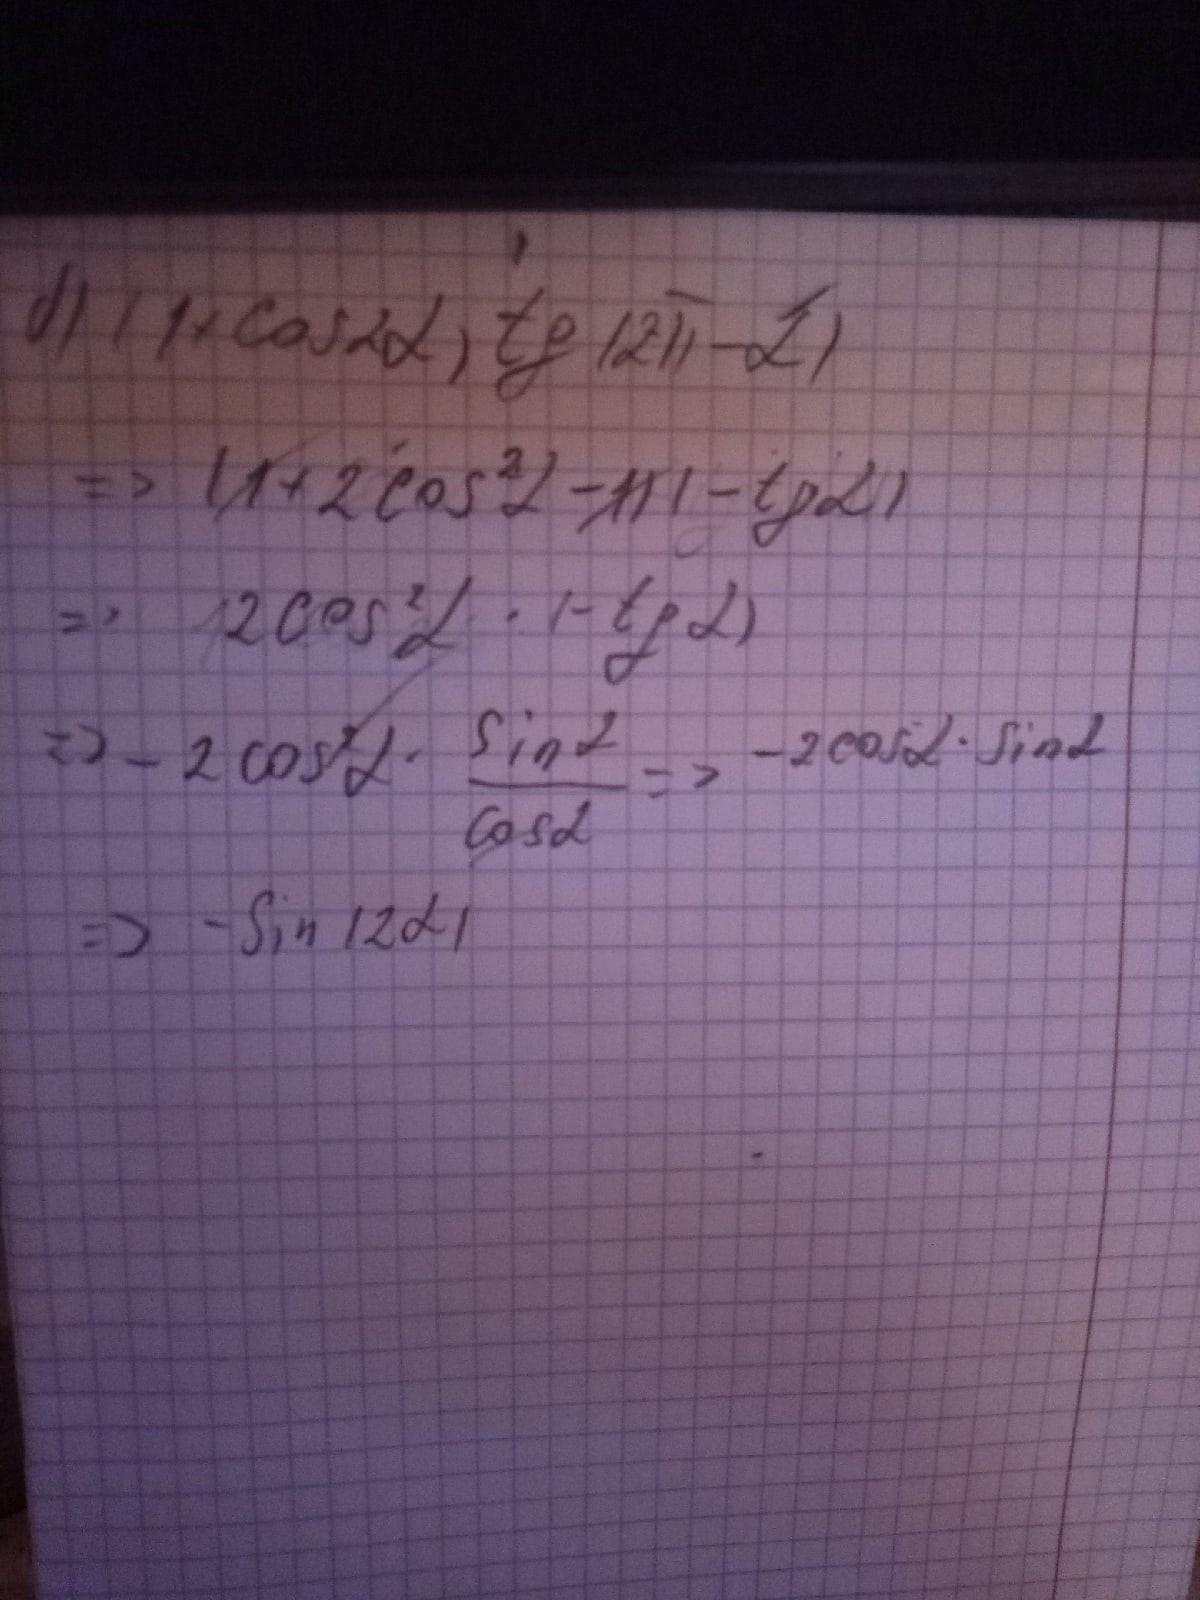 d) (1+cos2α) tg(2π-α)
=> (1+2cos²α-1)(-tgα)
=> 2cos²α · (-tgα)
=> -2cos²α · sinα/cosα => -2cosα · sinα
=> -sin(2α)